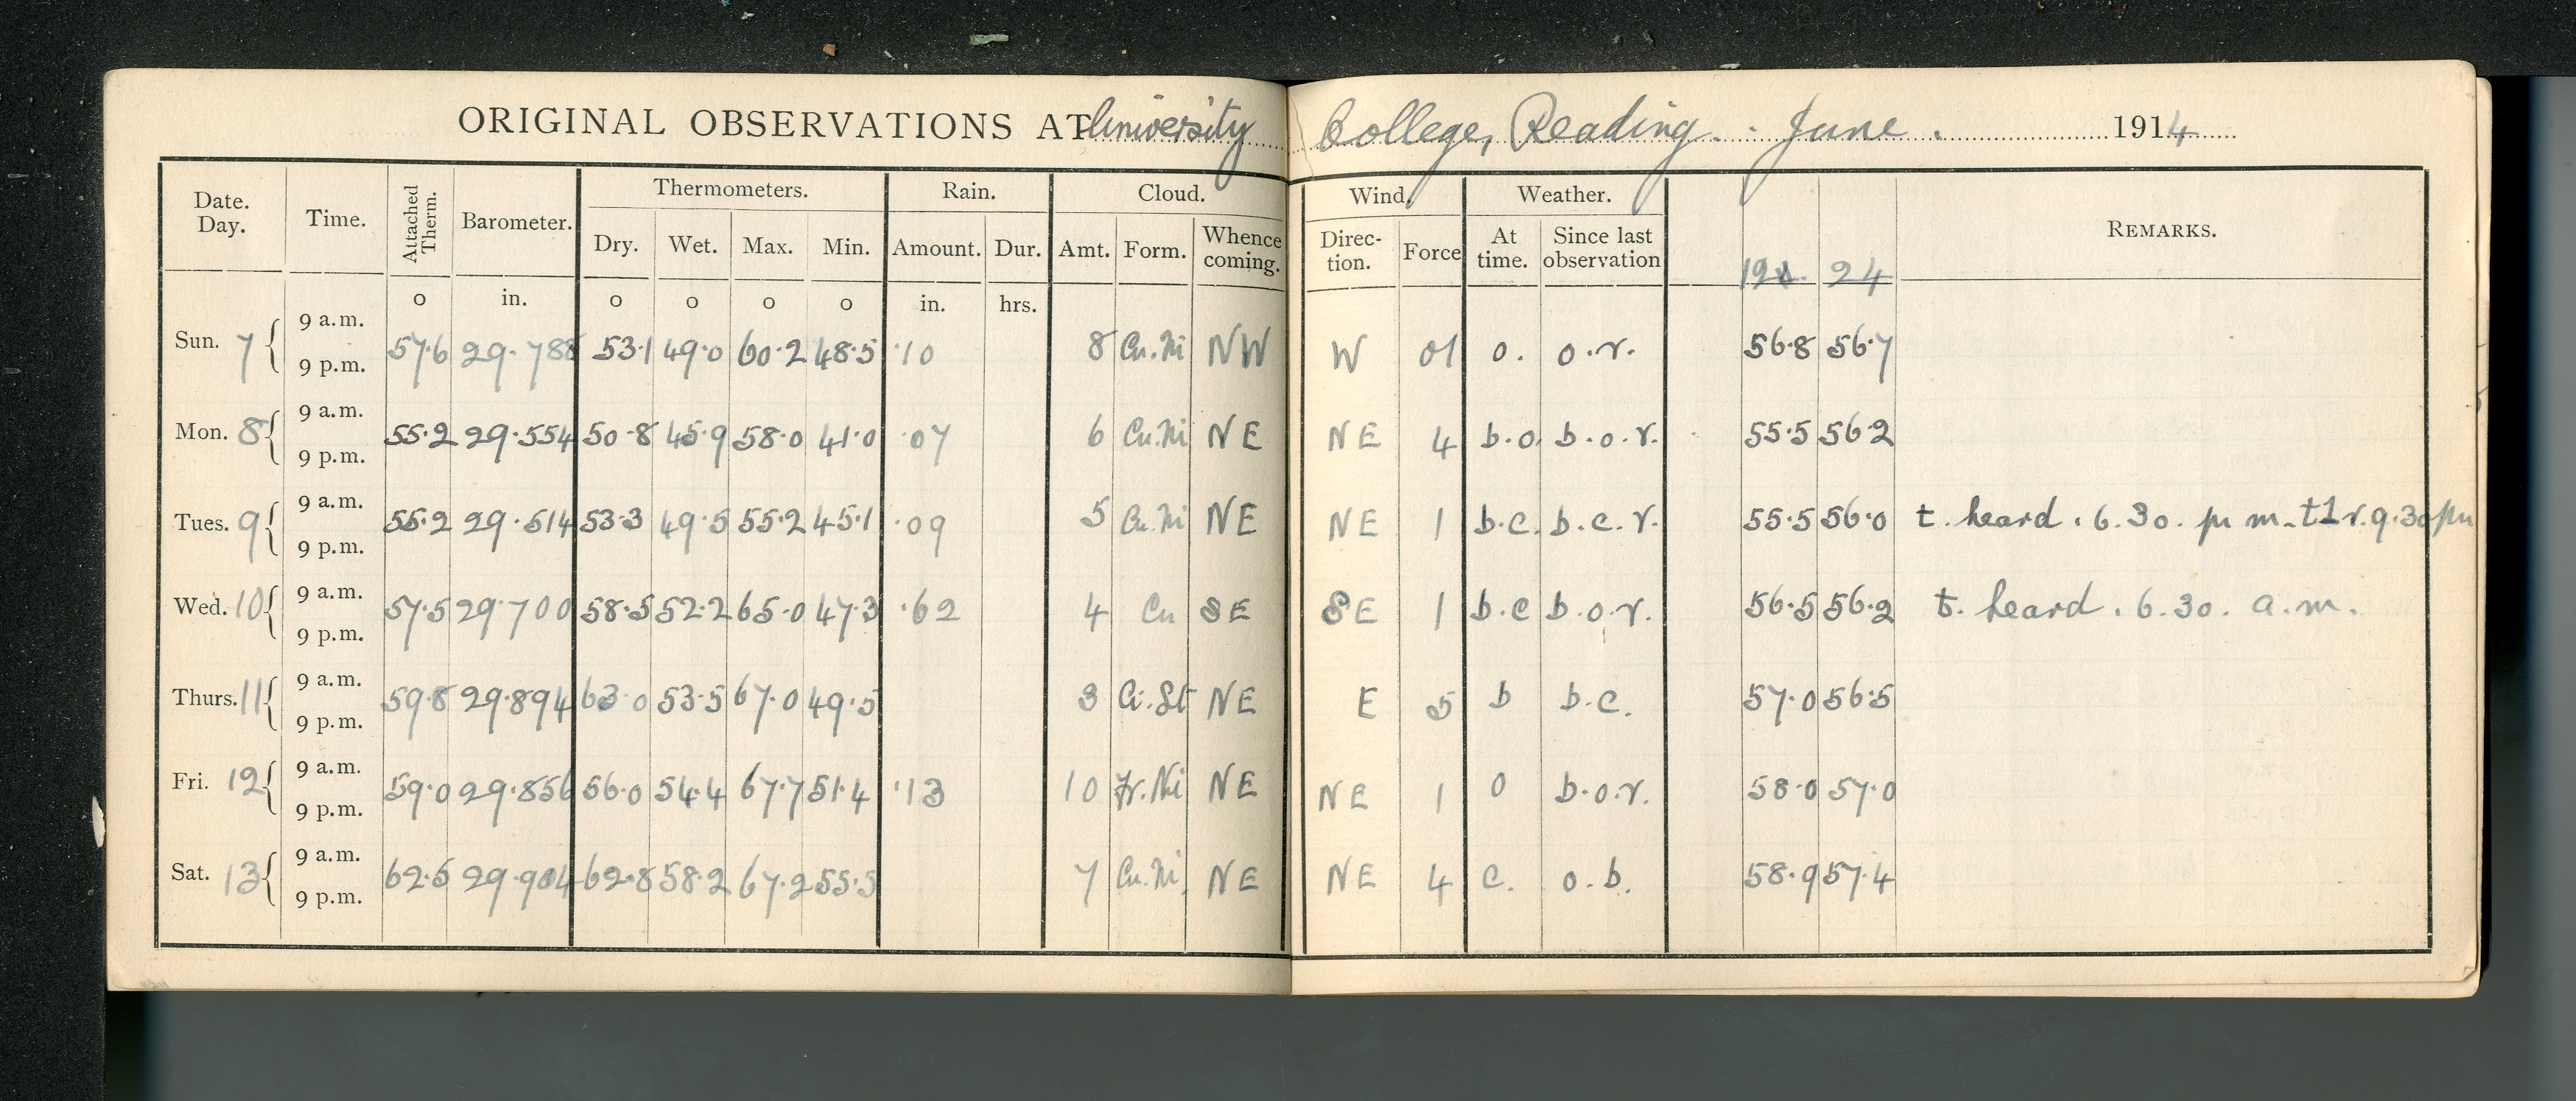 ORIGINAL OBSERVATIONS AT University College, Reading. June. 1914
Date. Day. Time. Attached Therm. Barometer. Thermometers. Rain. Cloud. Wind. Weather. REMARKS.
Dry. Wet. Max. Min. Amount. Dur. Amt. Form. Whence coming. Direction. Force At time. Since last observation 24
o in. o o o o in. hrs.
Sun. 7 9 a.m. 9 p.m. 57.6 29.788 53.1 49.0 60.2 48.5 .10 8 Cu.Ni NW W 01 o. o.r. 56.8 56.7
Mon. 8 9 a.m. 9 p.m. 55.2 29.554 50.8 45.9 58.0 41.0 .07 6 Cu.Ni NE NE 4 b.o. b.o.r. 55.5 56.2
Tues. 9 9 a.m. 9 p.m. 55.2 29.514 53.3 49.5 55.2 45.1 .09 5 Cu.Ni NE NE 1 b.c. b.c.r. 55.5 56.0 t. heard. 6.30. p m. t l r. 9.30 pm
Wed. 10 9 a.m. 9 p.m. 57.5 29.700 58.5 52.2 65.0 47.3 .62 4 Cu SE SE 1 b.c b.o.r. 56.5 56.2 t. heard. 6.30. a.m.
Thurs. 11 9 a.m. 9 p.m. 59.8 29.894 63.0 53.5 67.0 49.5 3 Ci.St NE E 5 b b.c. 57.0 56.5
Fri. 12 9 a.m. 9 p.m. 59.0 29.856 56.0 54.4 67.7 51.4 .13 10 Fr.Ni NE NE 1 o b.o.r. 58.0 57.0
Sat. 13 9 a.m. 9 p.m. 62.5 29.904 62.8 58.2 67.2 55.5 7 Cu.Ni. NE NE 4 c. o.b. 58.9 57.4